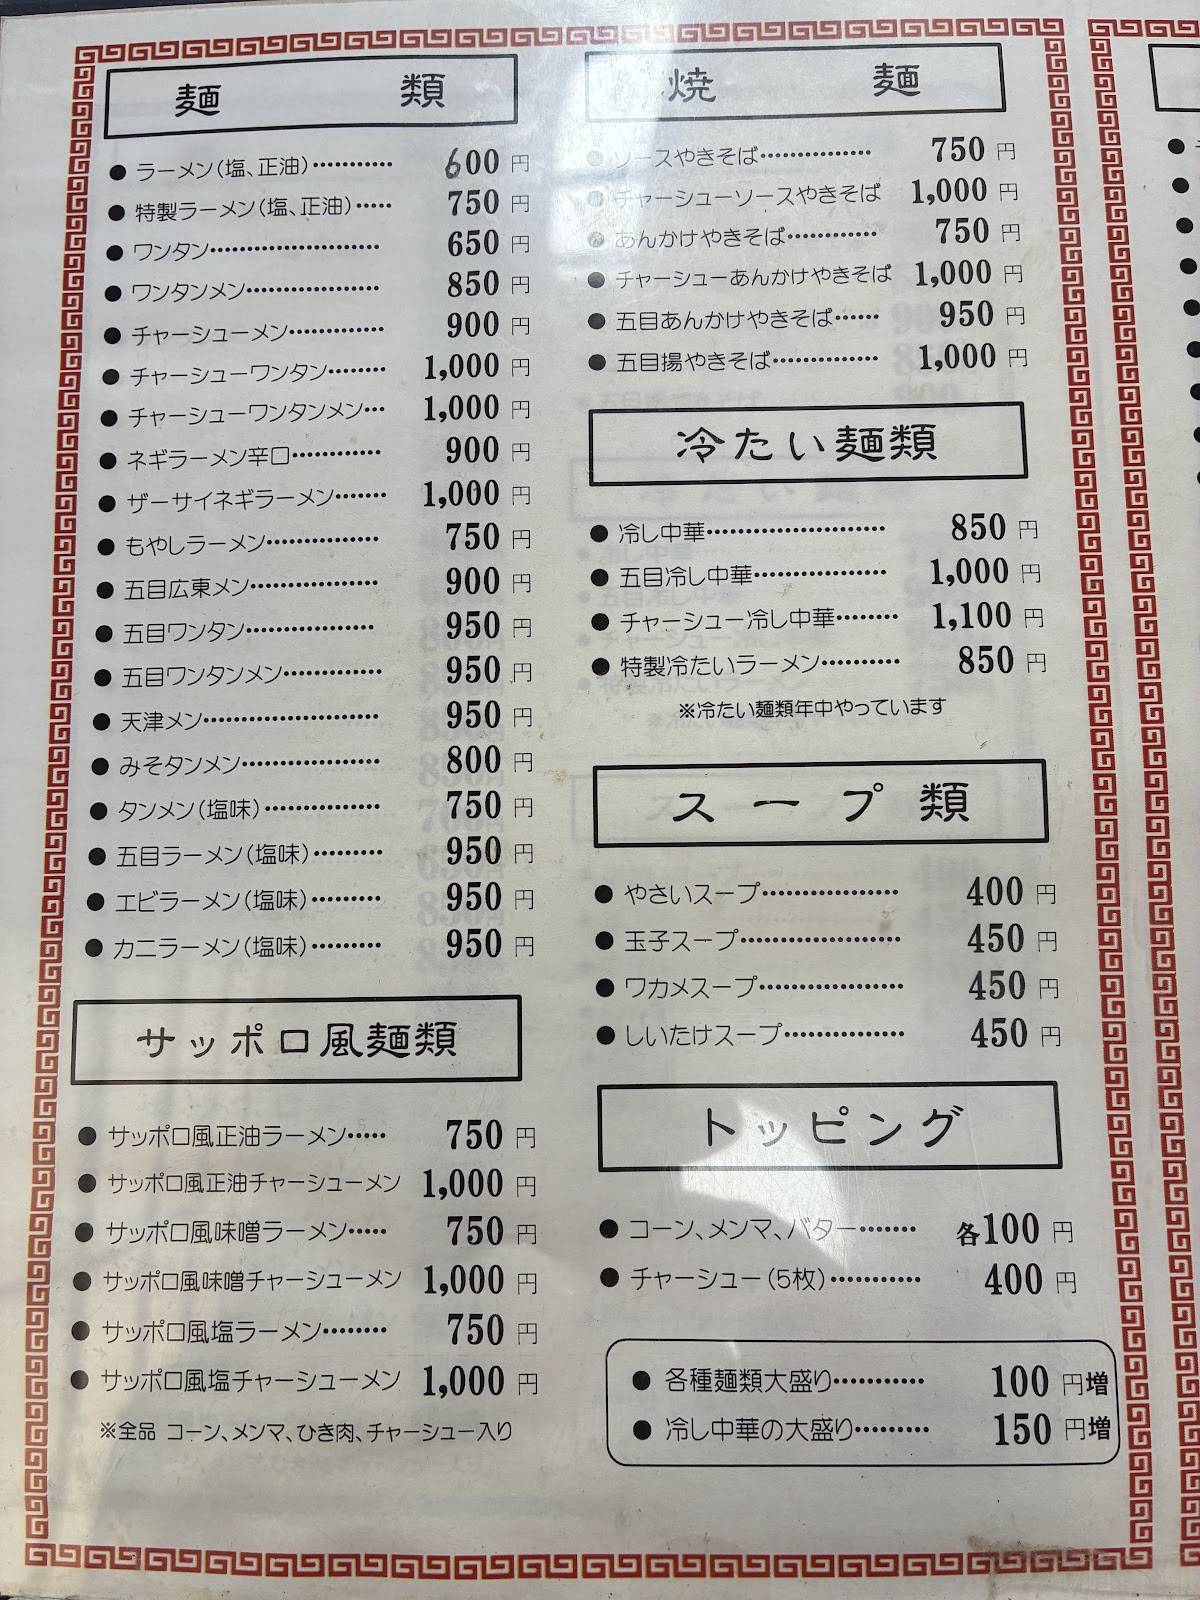 麺類
●ラーメン(塩、正油)………… 600 円
●特製ラーメン(塩、正油)…… 750 円
●ワンタン………………… 650 円
●ワンタンメン……………… 850 円
●チャーシューメン………… 900 円
●チャーシューワンタン……… 1,000 円
●チャーシューワンタンメン… 1,000 円
●ネギラーメン辛口………… 900 円
●ザーサイネギラーメン…… 1,000 円
●もやしラーメン…………… 750 円
●五目広東メン……………… 900 円
●五目ワンタン……………… 950 円
●五目ワンタンメン………… 950 円
●天津メン…………………… 950 円
●みそタンメン……………… 800 円
●タンメン(塩味)…………… 750 円
●五目ラーメン(塩味)……… 950 円
●エビラーメン(塩味)……… 950 円
●カニラーメン(塩味)……… 950 円
サッポロ風麺類
●サッポロ風正油ラーメン…… 750 円
●サッポロ風正油チャーシューメン 1,000 円
●サッポロ風味噌ラーメン…… 750 円
●サッポロ風味噌チャーシューメン 1,000 円
●サッポロ風塩ラーメン……… 750 円
●サッポロ風塩チャーシューメン 1,000 円
※全品 コーン、メンマ、ひき肉、チャーシュー入り
焼麺
●ソースやきそば…………… 750 円
●チャーシューソースやきそば 1,000 円
●あんかけやきそば………… 750 円
●チャーシューあんかけやきそば 1,000 円
●五目あんかけやきそば…… 950 円
●五目揚やきそば…………… 1,000 円
冷たい麺類
●冷し中華…………………… 850 円
●五目冷し中華……………… 1,000 円
●チャーシュー冷し中華……… 1,100 円
●特製冷たいラーメン………… 850 円
※冷たい麺類年中やっています
スープ類
●やさいスープ……………… 400 円
●玉子スープ………………… 450 円
●ワカメスープ……………… 450 円
●しいたけスープ…………… 450 円
トッピング
●コーン、メンマ、バター……… 各100 円
●チャーシュー(5枚)………… 400 円
●各種麺類大盛り………… 100 円増
●冷し中華の大盛り……… 150 円増